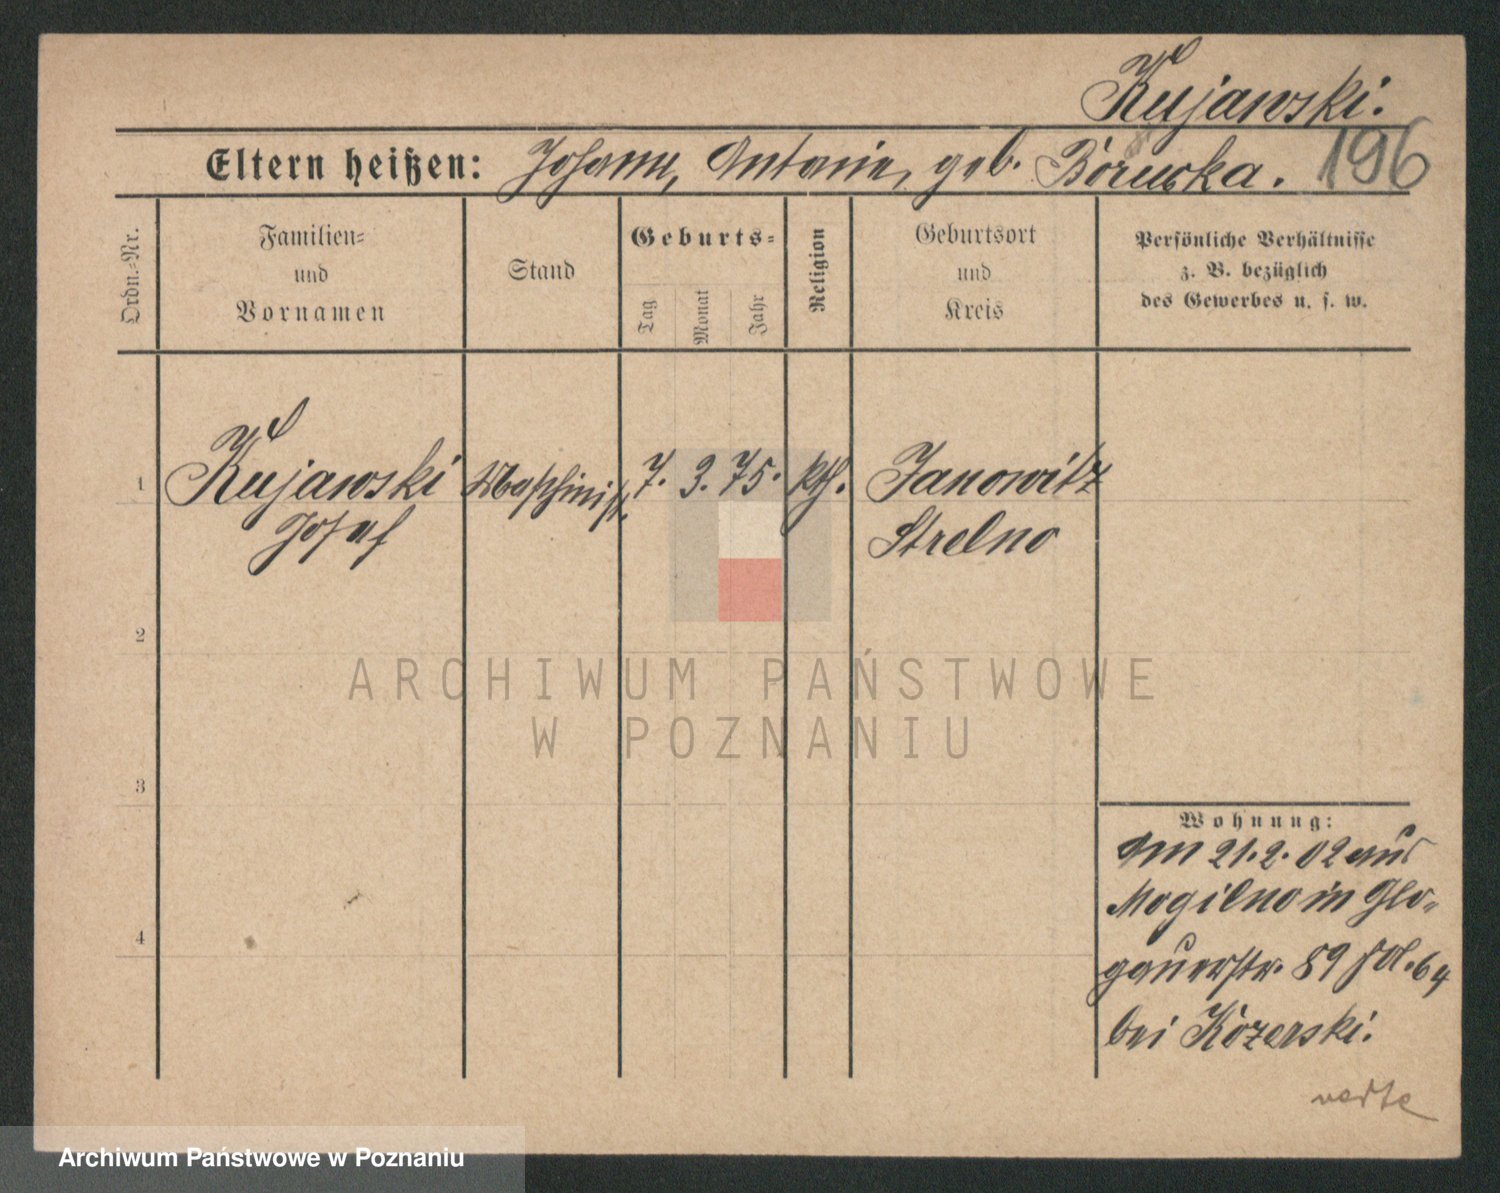 Kujawski.
Eltern heißen: Johann, Antonie, geb. 196
Ordn.-Nr.
Familien-
und
Vornamen
Stand
Geburts-
Tag
Monat
Jahr
Religion
Geburtsort
und
Kreis
Persönliche Verhältnisse
z. B. bezüglich
des Gewerbes u. s. w.
1 Kujawski Maschinist. 7. 3. 75. kth. Janowitz
Josef Strelno
2
ARCHIWUM PAŃSTWOWE
W POZNANIU
3
Wohnung:
Am 21.2.02 aus
Mogilno in Glo-
4
gauerstr. 89
bei Kozerski.
verte
Archiwum Państwowe w Poznaniu